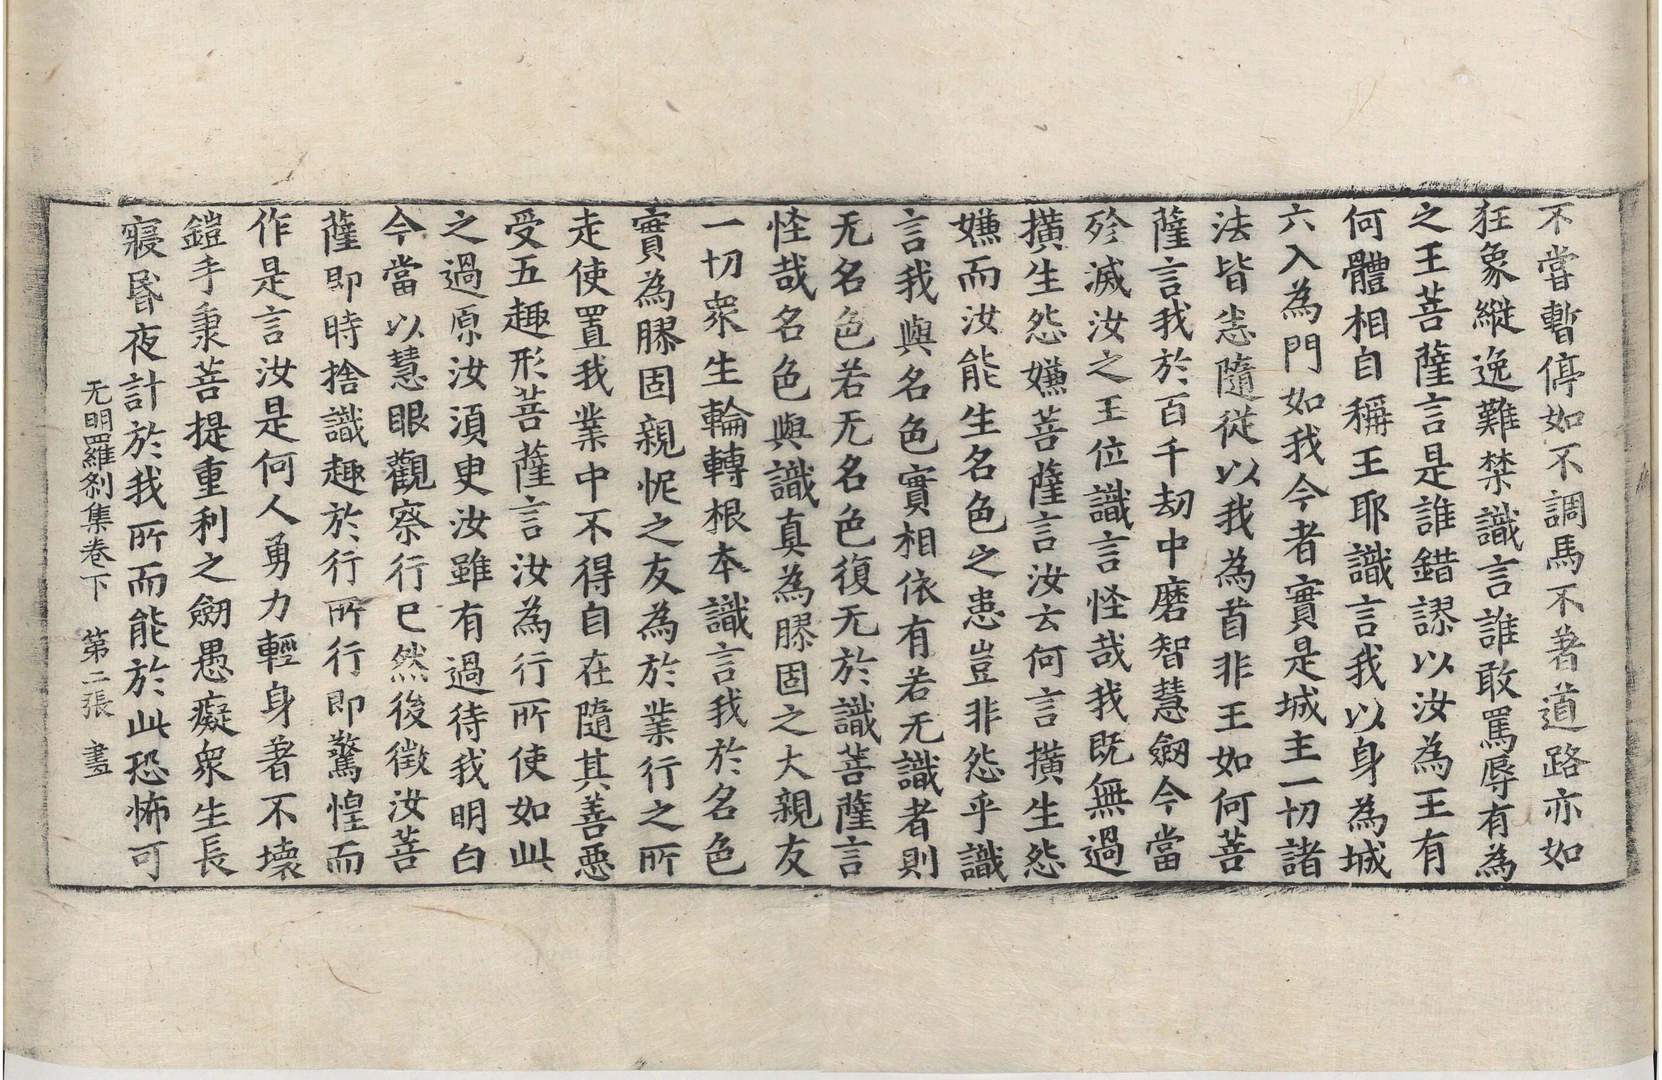 不嘗暫停如不調馬不著道路亦如
狂象縱逸難禁識言誰敢罵辱有為
之王菩薩言是誰錯謬以汝為王有
何體相自稱王耶識言我以身為城
六入為門如我今者實是城主一切諸
法皆悉隨從以我為首非王如何菩
薩言我於百千劫中磨智慧劒今當
殄滅汝之王位識言怪哉我既無過
橫生怨嫌菩薩言汝云何言橫生怨
嫌而汝能生名色之患豈非怨乎識
言我與名色實相依有若无識者則
无名色若无名色復无於識菩薩言
怪哉名色與識真為膠固之大親友
一切衆生輪轉根本識言我於名色
實為膠固親怩之友為於業行之所
走使置我業中不得自在隨其善惡
受五趣形菩薩言汝為行所使如此
之過原汝須更汝雖有過待我明白
今當以慧眼觀察行已然後徵汝菩
薩即時捨識趣於行所行即驚惶而
作是言汝是何人勇力輕身著不壞
鎧手秉菩提重利之劒愚癡衆生長
寢昏夜計於我所而能於此恐怖可
无明羅刹集卷下 第二張 畫